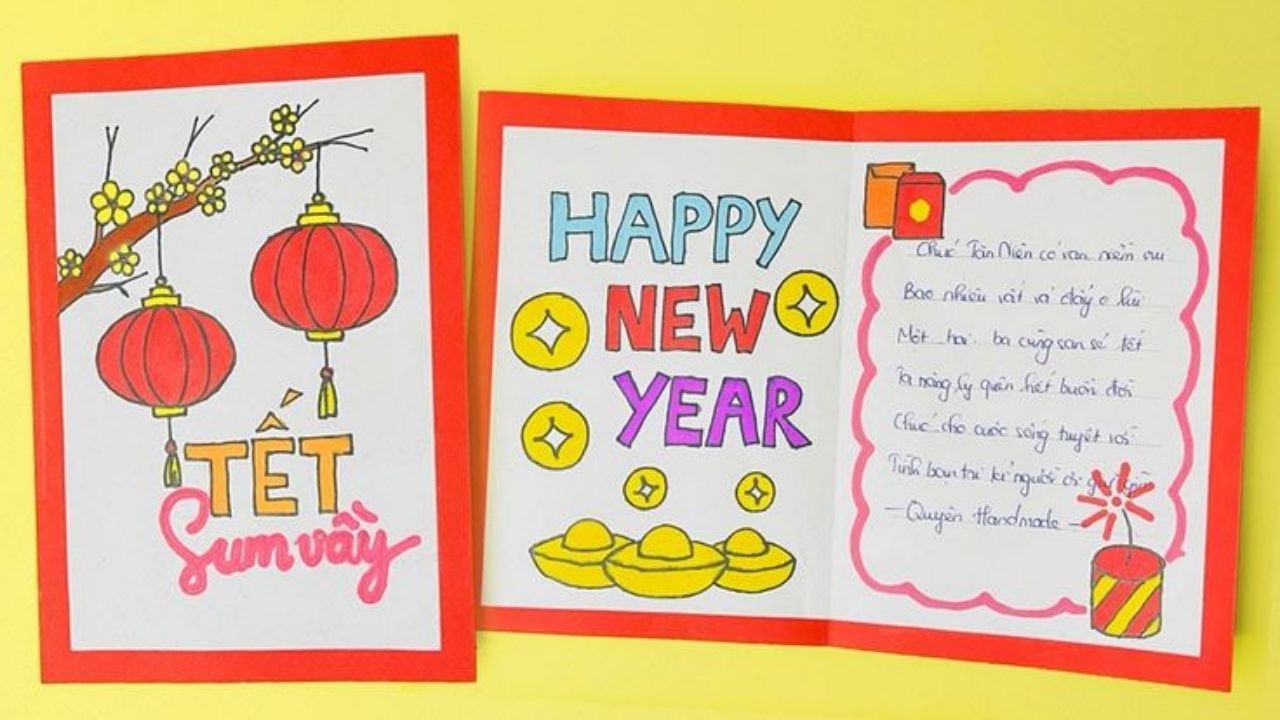 TẾT
Sum vầy
HAPPY
NEW
YEAR
Chúc Tân Niên có vạn niềm vui
Bao nhiêu vất vả đẩy
Một hai ba cùng san sẻ tết
hết buồn đời
Chúc cho cuộc sống tuyệt vời
Tình bạn tri kỉ người ơi
- Quyên Handmade -